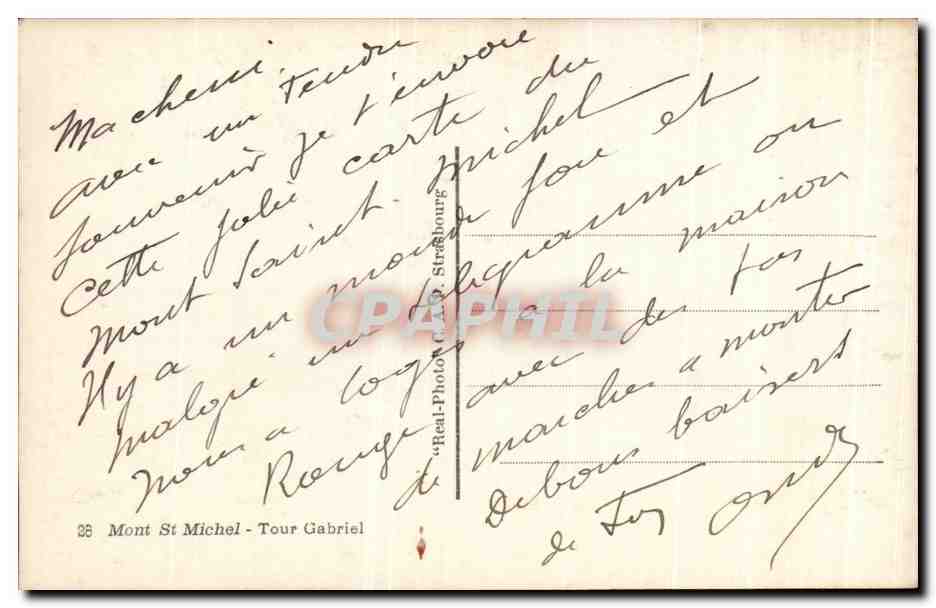 Ma cheni.
avec un Tendre
souvenir je t'envoie
Cette jolie carte du
Mont Saint-Michel
Il y a un monde fou et
malgré un telegramme on
nous a logés a la maison
Rouge avec des tas
de marches a monter
De bons baisers
de Ton
"Real-Photo" C.A.P. Strasbourg
CPAPHIL
28 Mont St Michel - Tour Gabriel